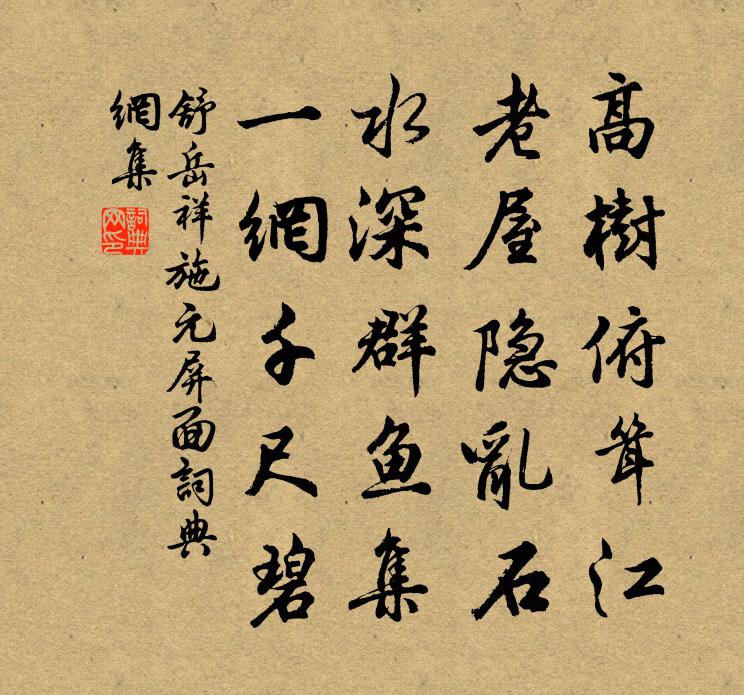 高樹俯耸江
老屋隐亂石
水深群鱼集
一網千尺碧
舒岳祥施元屏面詞典
網集
詞典
网印